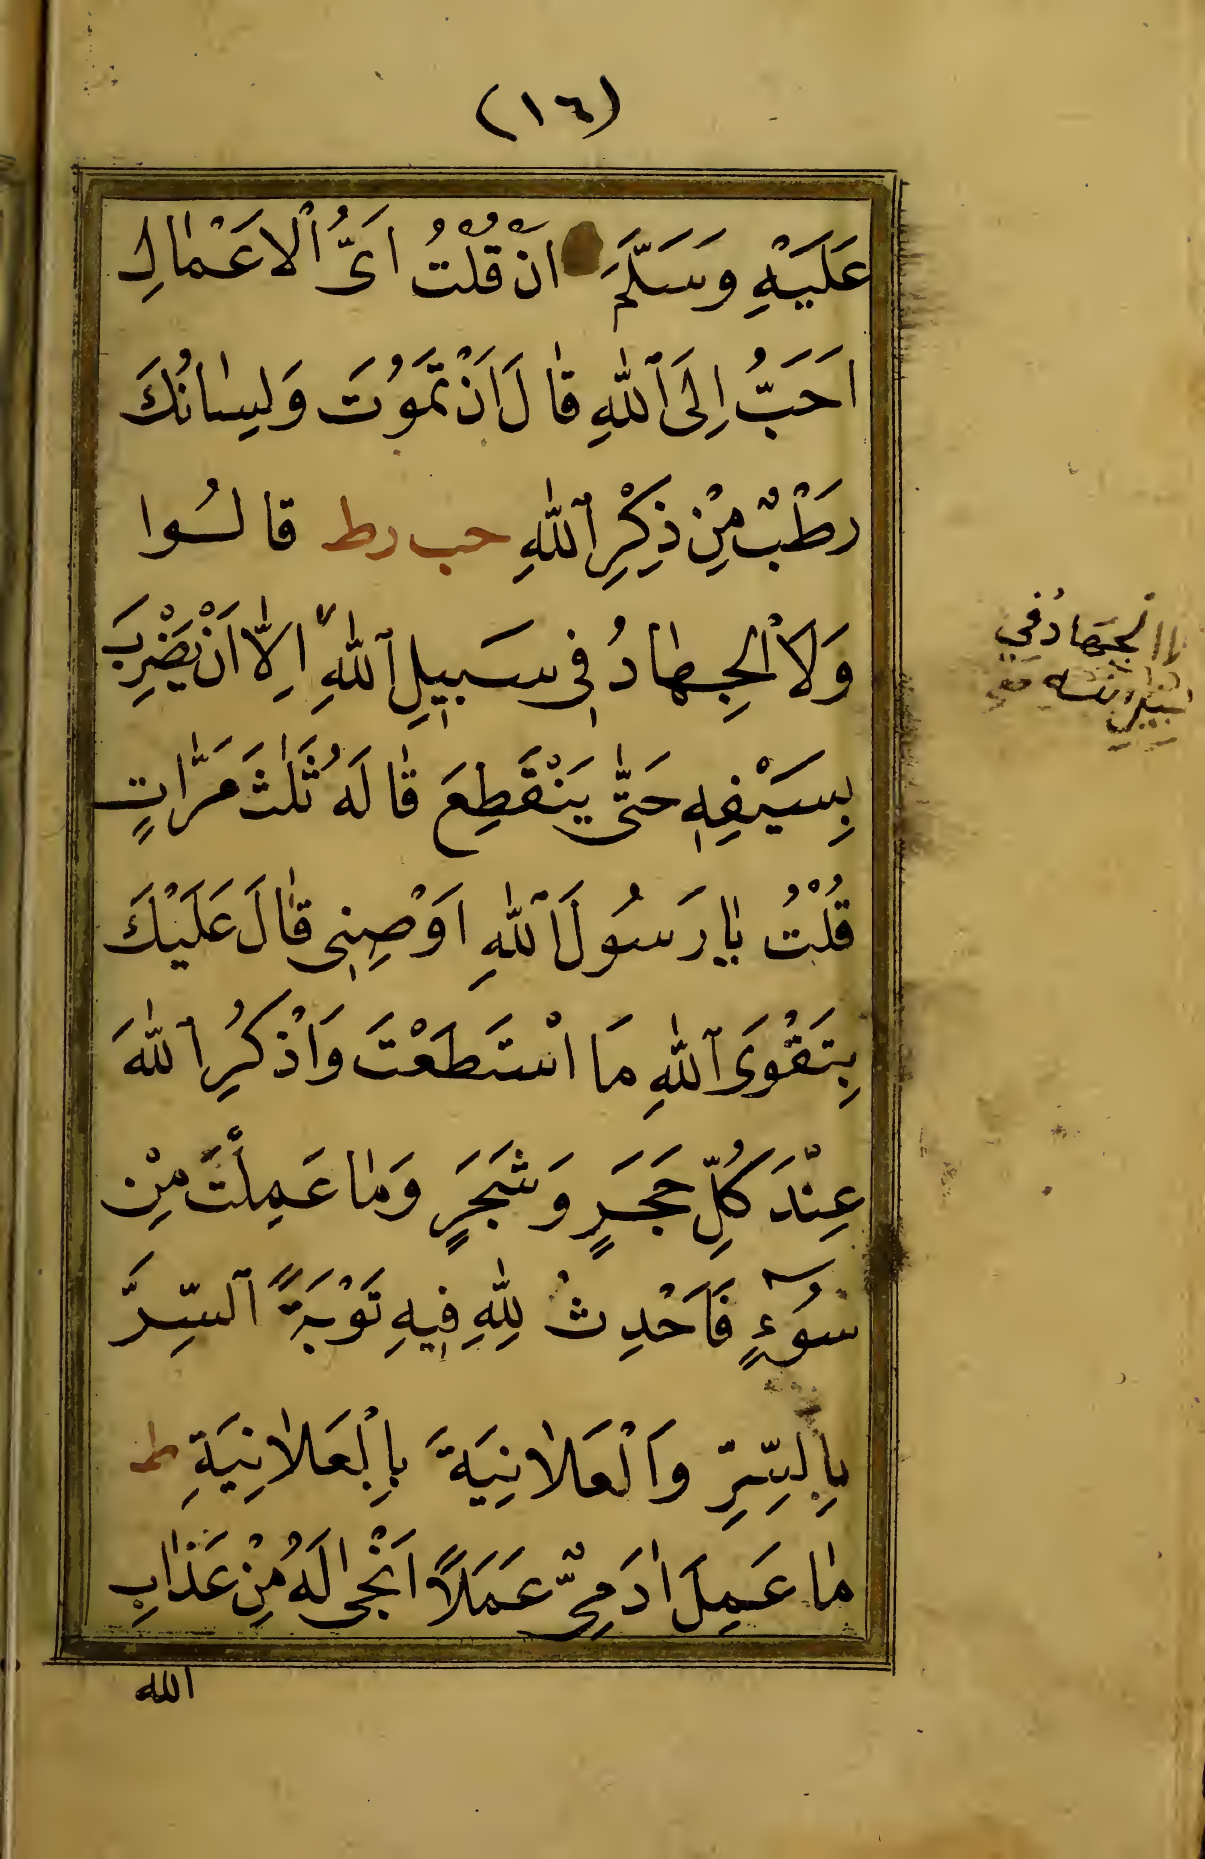 (١٦)
عَلَيْهِ وَسَلَّمَ اَنْ قُلْتُ اَىُّ الْاَعْمَالِ
اَحَبُّ اِلَى اللّٰهِ قَالَ اَنْ تَمَوُتَ وَلِسَانُكَ
رَطْبٌ مِنْ ذِكْرِ اللّٰهِ حب رط قالُوا
وَلَا الْجِهَادُ فِى سَبِيلِ اللّٰهِ اِلَّا اَنْ يَضْرِبَ
بِسَيْفِهِ حَتّٰى يَنْقَطِعَ قَالَهُ ثَلٰثَ مَرَّاتٍ
قُلْتُ يَا رَسُولَ اللّٰهِ اَوْصِنِى قَالَ عَلَيْكَ
بِتَقْوَى اللّٰهِ مَا اسْتَطَعْتَ وَاذْكُرِ اللّٰهَ
عِنْدَ كُلِّ حَجَرٍ وَشَجَرٍ وَمَا عَمِلْتَ مِنْ
سُوٓءٍ فَاَحْدِثْ لِلّٰهِ فِيهِ تَوْبَةً اَلسِّرَّ
بِالسِّرِّ وَالْعَلَانِيَةَ بِالْعَلَانِيَةِ ط
مَا عَمِلَ اٰدَمِىٌّ عَمَلًا اَنْجٰى لَهُ مِنْ عَذَابِ
الله
الجهادُ في
سبيل الله